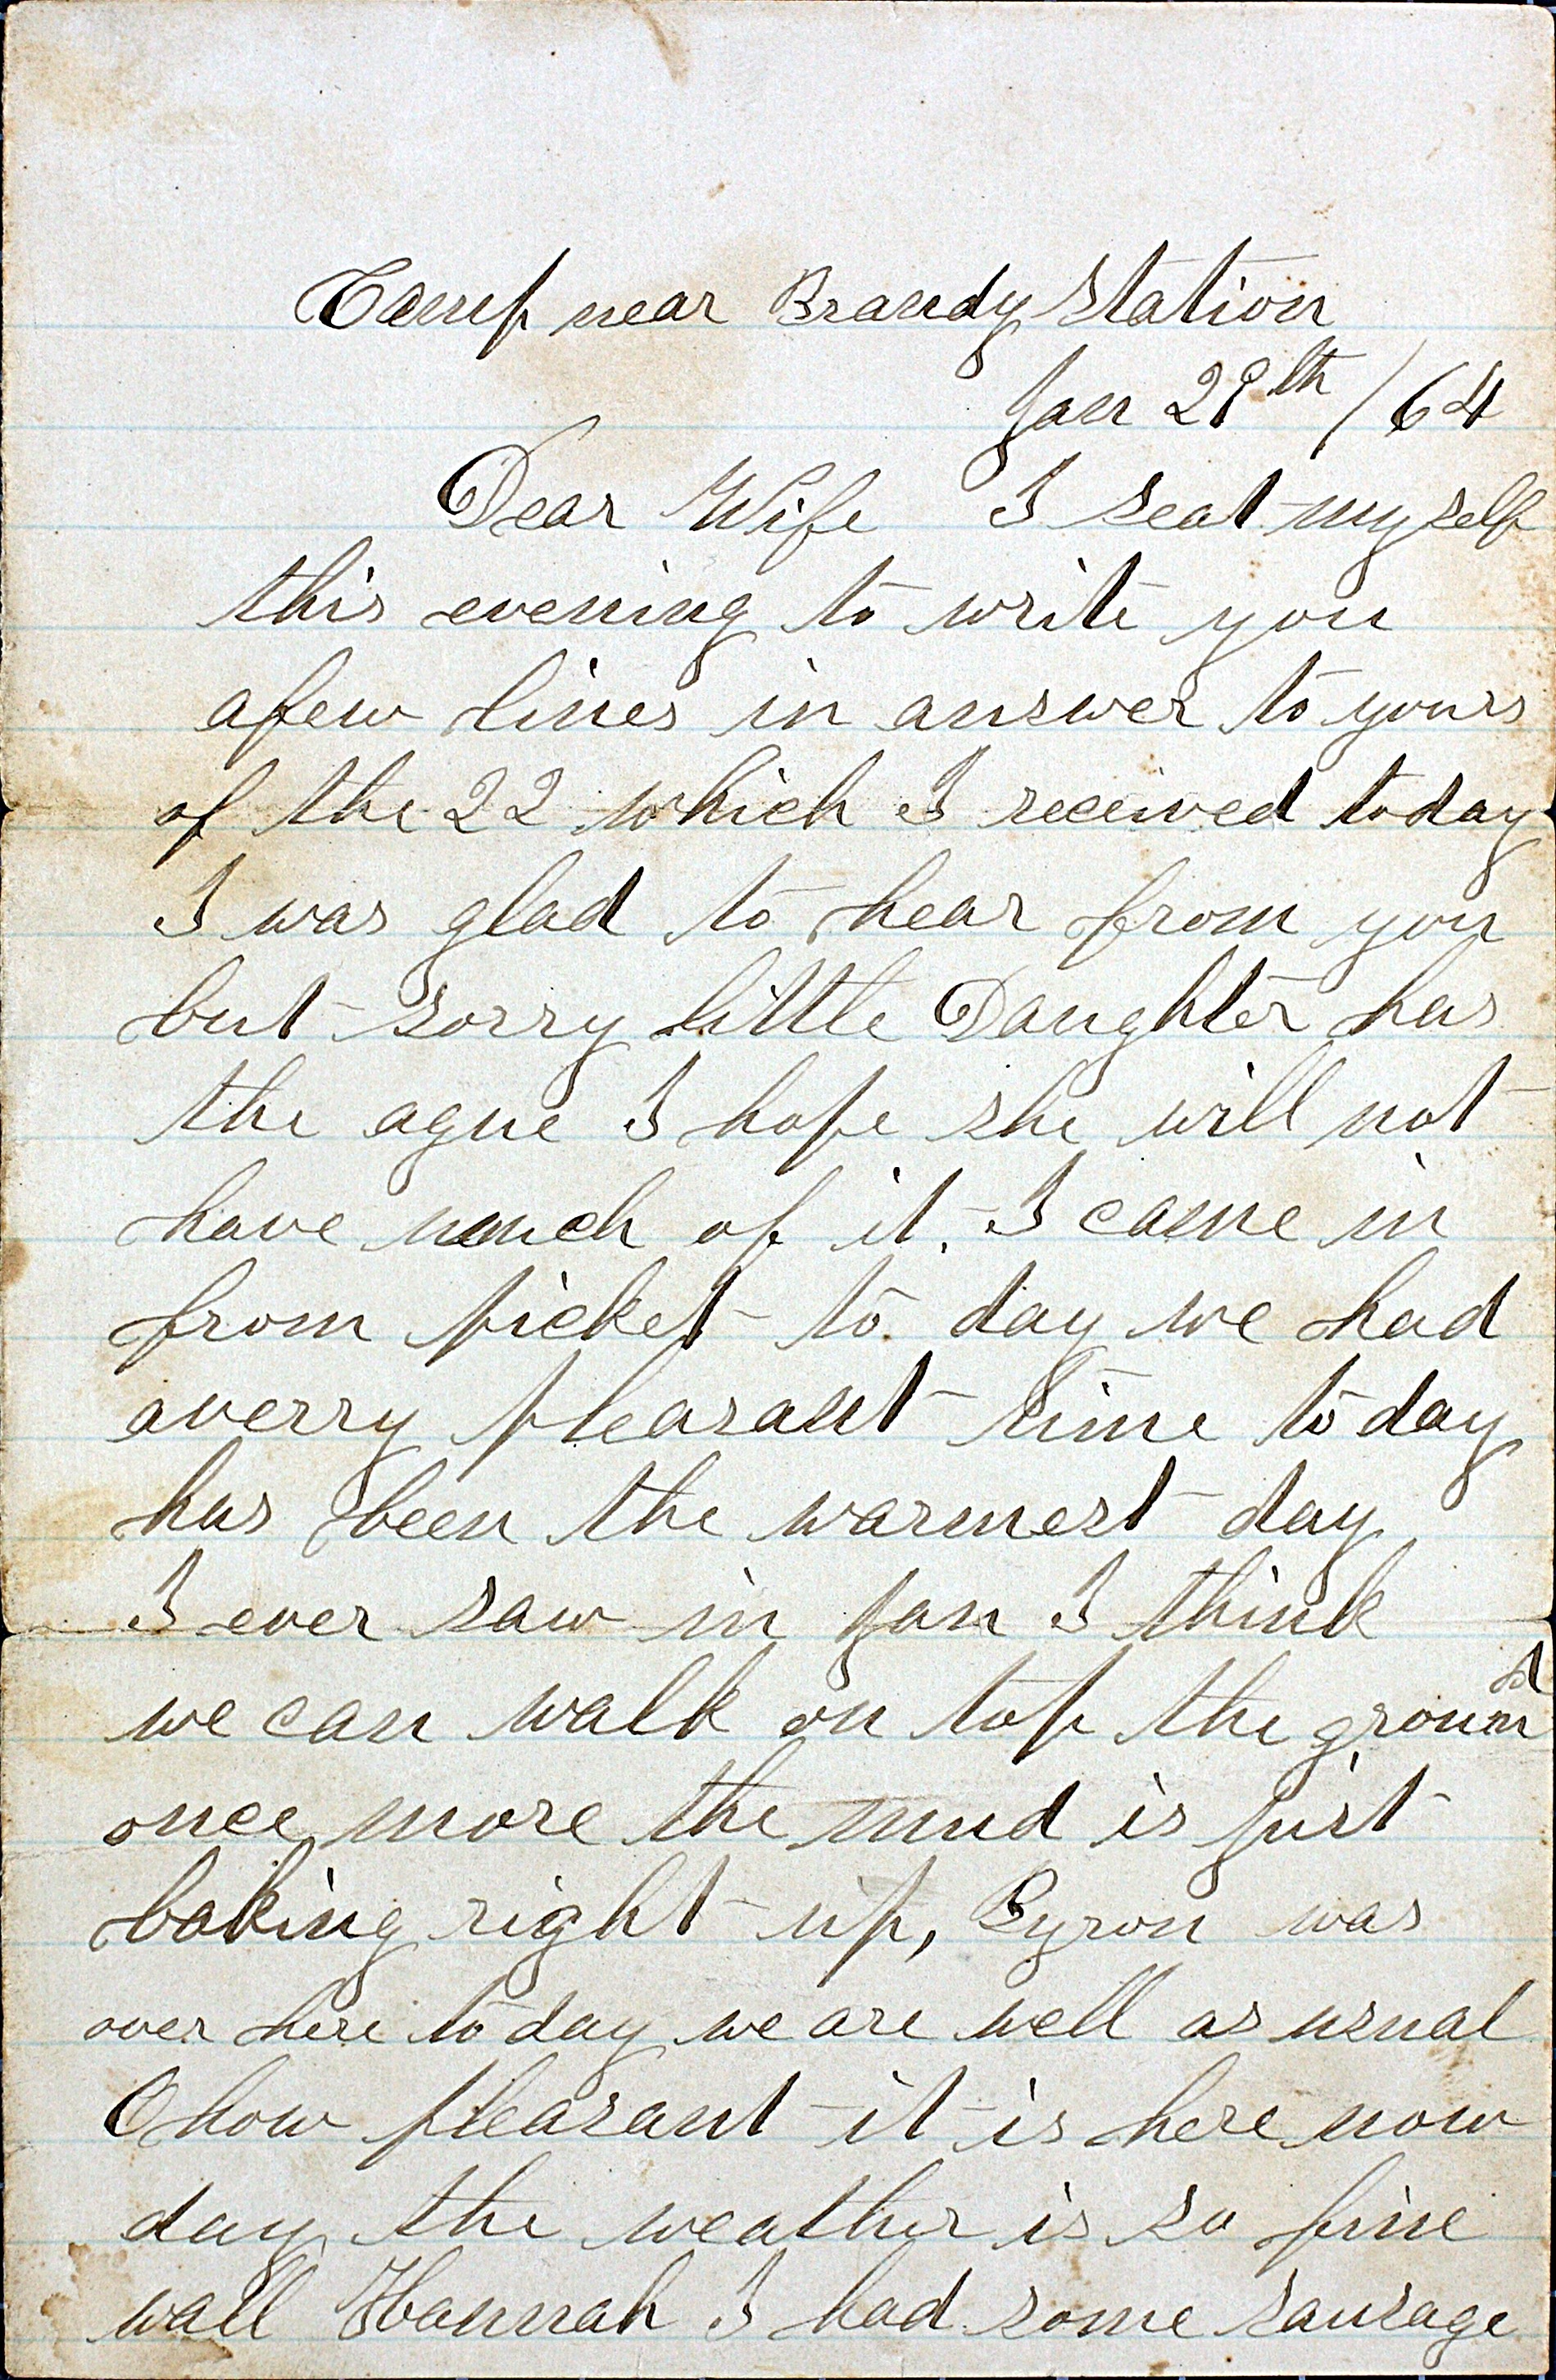 Camp near Brandy Station
Jan 28th / 64
Dear Wife I seat myself
this evening to write you
afew lines in answer to yours
of the 22 which I received today
I was glad to hear from you
but sorry little Daughter has
the ague I hope she will not
have much of it. I came in
from picket to day we had
averry pleasant time to day
has been the warmest day
I ever saw in Jan I think
we can walk on top the ground
once more the mud is just
baking right up, Byron was
over here to day we are well as usual
O how pleasant it is here now
day the weather is so fine
wall Hannah I had some sausage